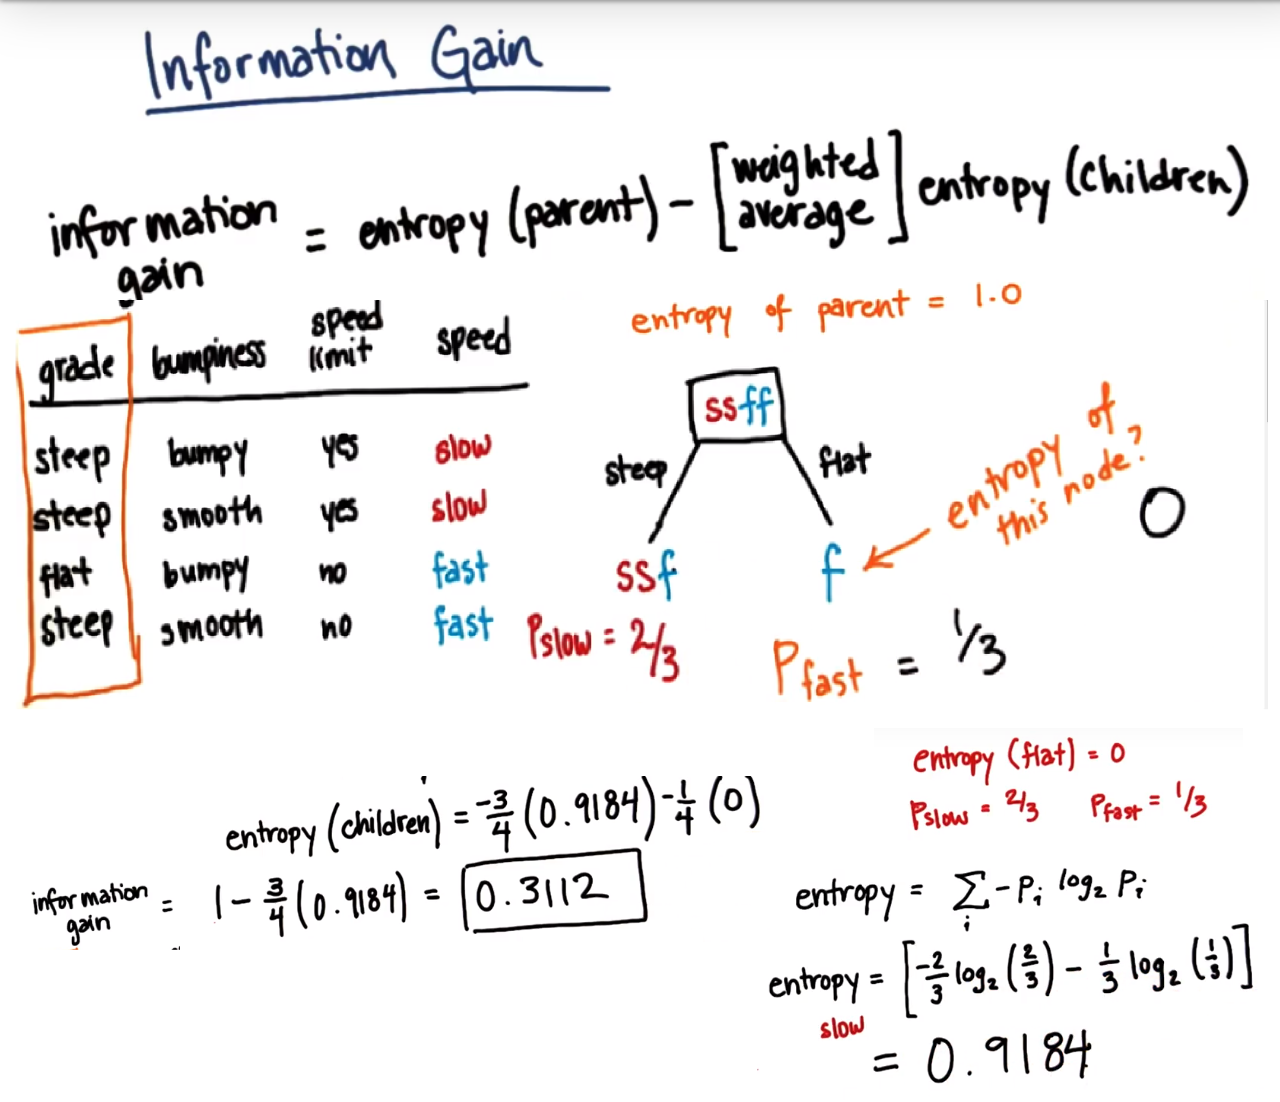 Information Gain
information gain = entropy (parent) - [weighted average] entropy (children)
entropy of parent = 1.0
grade bumpiness speed limit speed
steep bumpy yes slow
steep smooth yes slow
flat bumpy no fast
steep smooth no fast
ssff
steep flat
ssf f
entropy of this node?
0
Pslow = 2/3
Pfast = 1/3
entropy (flat) = 0
Pslow = 2/3 Pfast = 1/3
entropy (children) = -3/4 (0.9184) - 1/4 (0)
information gain = 1 - 3/4 (0.9184) = 0.3112
entropy = Σi -Pi log2 Pi
entropy slow = [-2/3 log2 (2/3) - 1/3 log2 (1/3)]
= 0.9184